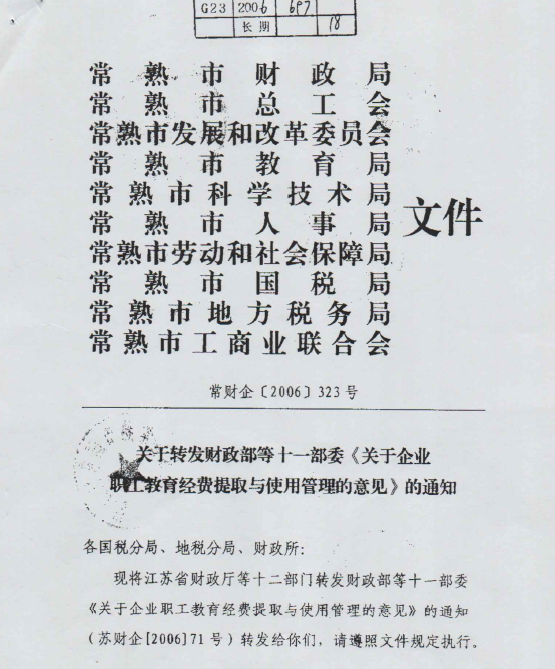 G23 2006 697
长期 18
常熟市财政局
常熟市总工会
常熟市发展和改革委员会
常熟市教育局
常熟市科学技术局
常熟市人事局
文件
常熟市劳动和社会保障局
常熟市国税局
常熟市地方税务局
常熟市工商业联合会
常财企〔2006〕323号
关于转发财政部等十一部委《关于企业
职工教育经费提取与使用管理的意见》的通知
各国税分局、地税分局、财政所：
现将江苏省财政厅等十二部门转发财政部等十一部委
《关于企业职工教育经费提取与使用管理的意见》的通知
（苏财企[2006]71号）转发给你们，请遵照文件规定执行。